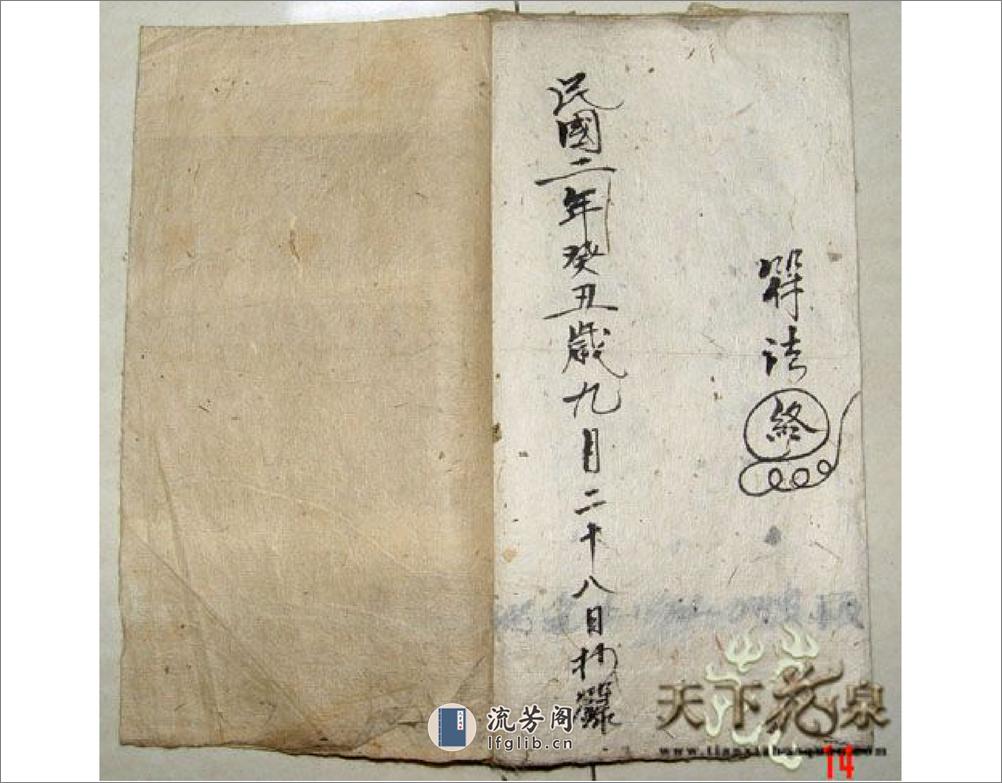 算法
終
民國二年癸丑歲九月二十八日抄錄
流芳阁
lfglib.cn
天下花泉
14